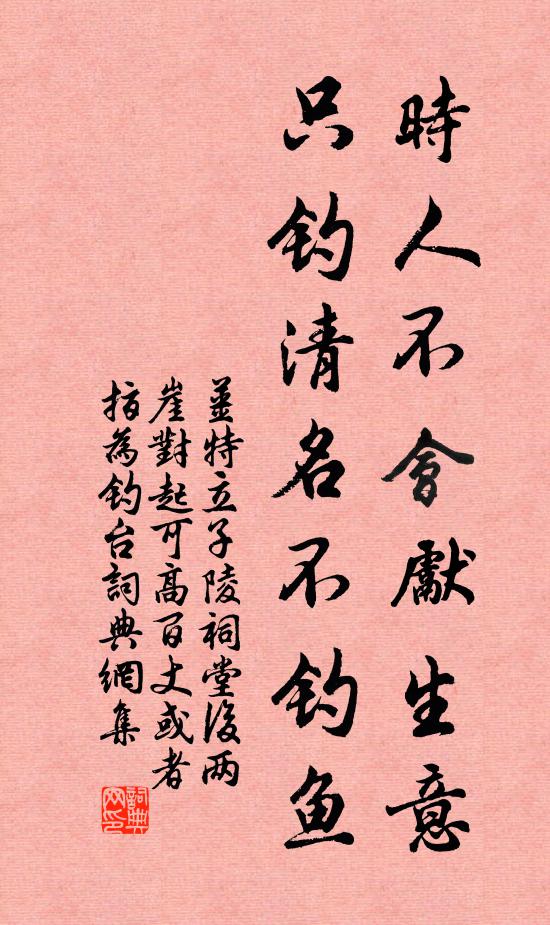 時人不會獻生意
只钓清名不钓鱼
姜特立子陵祠堂後两
崖對起可高百丈或者
指為钓台詞典網集
詞典网印